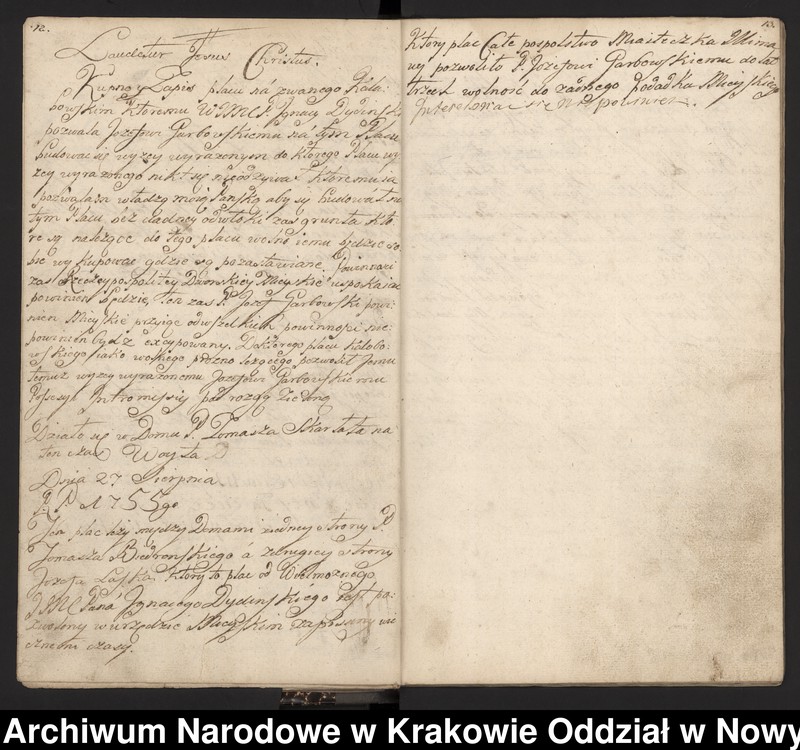 12.
Laudetur Jesus Christus.
Kupno y Zapis placu na zwanego Kala:
bowskim ktoremu WJMCP. Ignacy Dydinski
pozwala Jozefowi Garbowskiemu na tym Placu
budowac się wyzey wyrazonym do ktorego Placu wy:
zey wyrazonego nikt się nieodzywa. Ktoremu ia
pozwalam władzą moią Panską aby się budował na
tym Placu bez dadney odwłoki zas grunta kto:
re są nalezące do tego placu wolno iemu będzie so:
bie wykupowac gdzie są pozastawiane. Powinnosci
zas Rzeczypospolitey Dworskiey Mieyskie uspokaiac
powinien będzie, ten zas P. Jozef Garbowski powi:
nien Mieyskie przyiąc od wszelkich powinnosci nie:
powinien bydz excypowany. Do ktorego placu Kalabo:
wskiego iako woskiego prozno lezącego pozwolił Jemu
temuz wyzey wyrazonemu Jozefowi Garbowskiemu
Possesyi Intromissyi pod rozgą zieloną
Działo się w Domu P. Tomasza Skartata na
ten czas Woyta
Dnia 27 Sierpnia
R. P. 1755go
Ten plac lezy między Domami z iedney strony P.
Tomasza Biedronskiego a z drugiey strony
Jozefa Laska, ktory to plac od Wielmoznego
JMC Pana Ignacego Dydinskiego iest po:
zwolony w urzędzie Mieyskim zapisany wie
cznemi czasy.
13.
Ktory plac Całe pospolstwo Miasteczka
wy pozwoliło P. Jozefowi Garbowskiemu do lat
trzech wolnosc do zadnego podadku Mieyskiego
Interesowac się nie powinien.
Archiwum Narodowe w Krakowie Oddział w Nowy